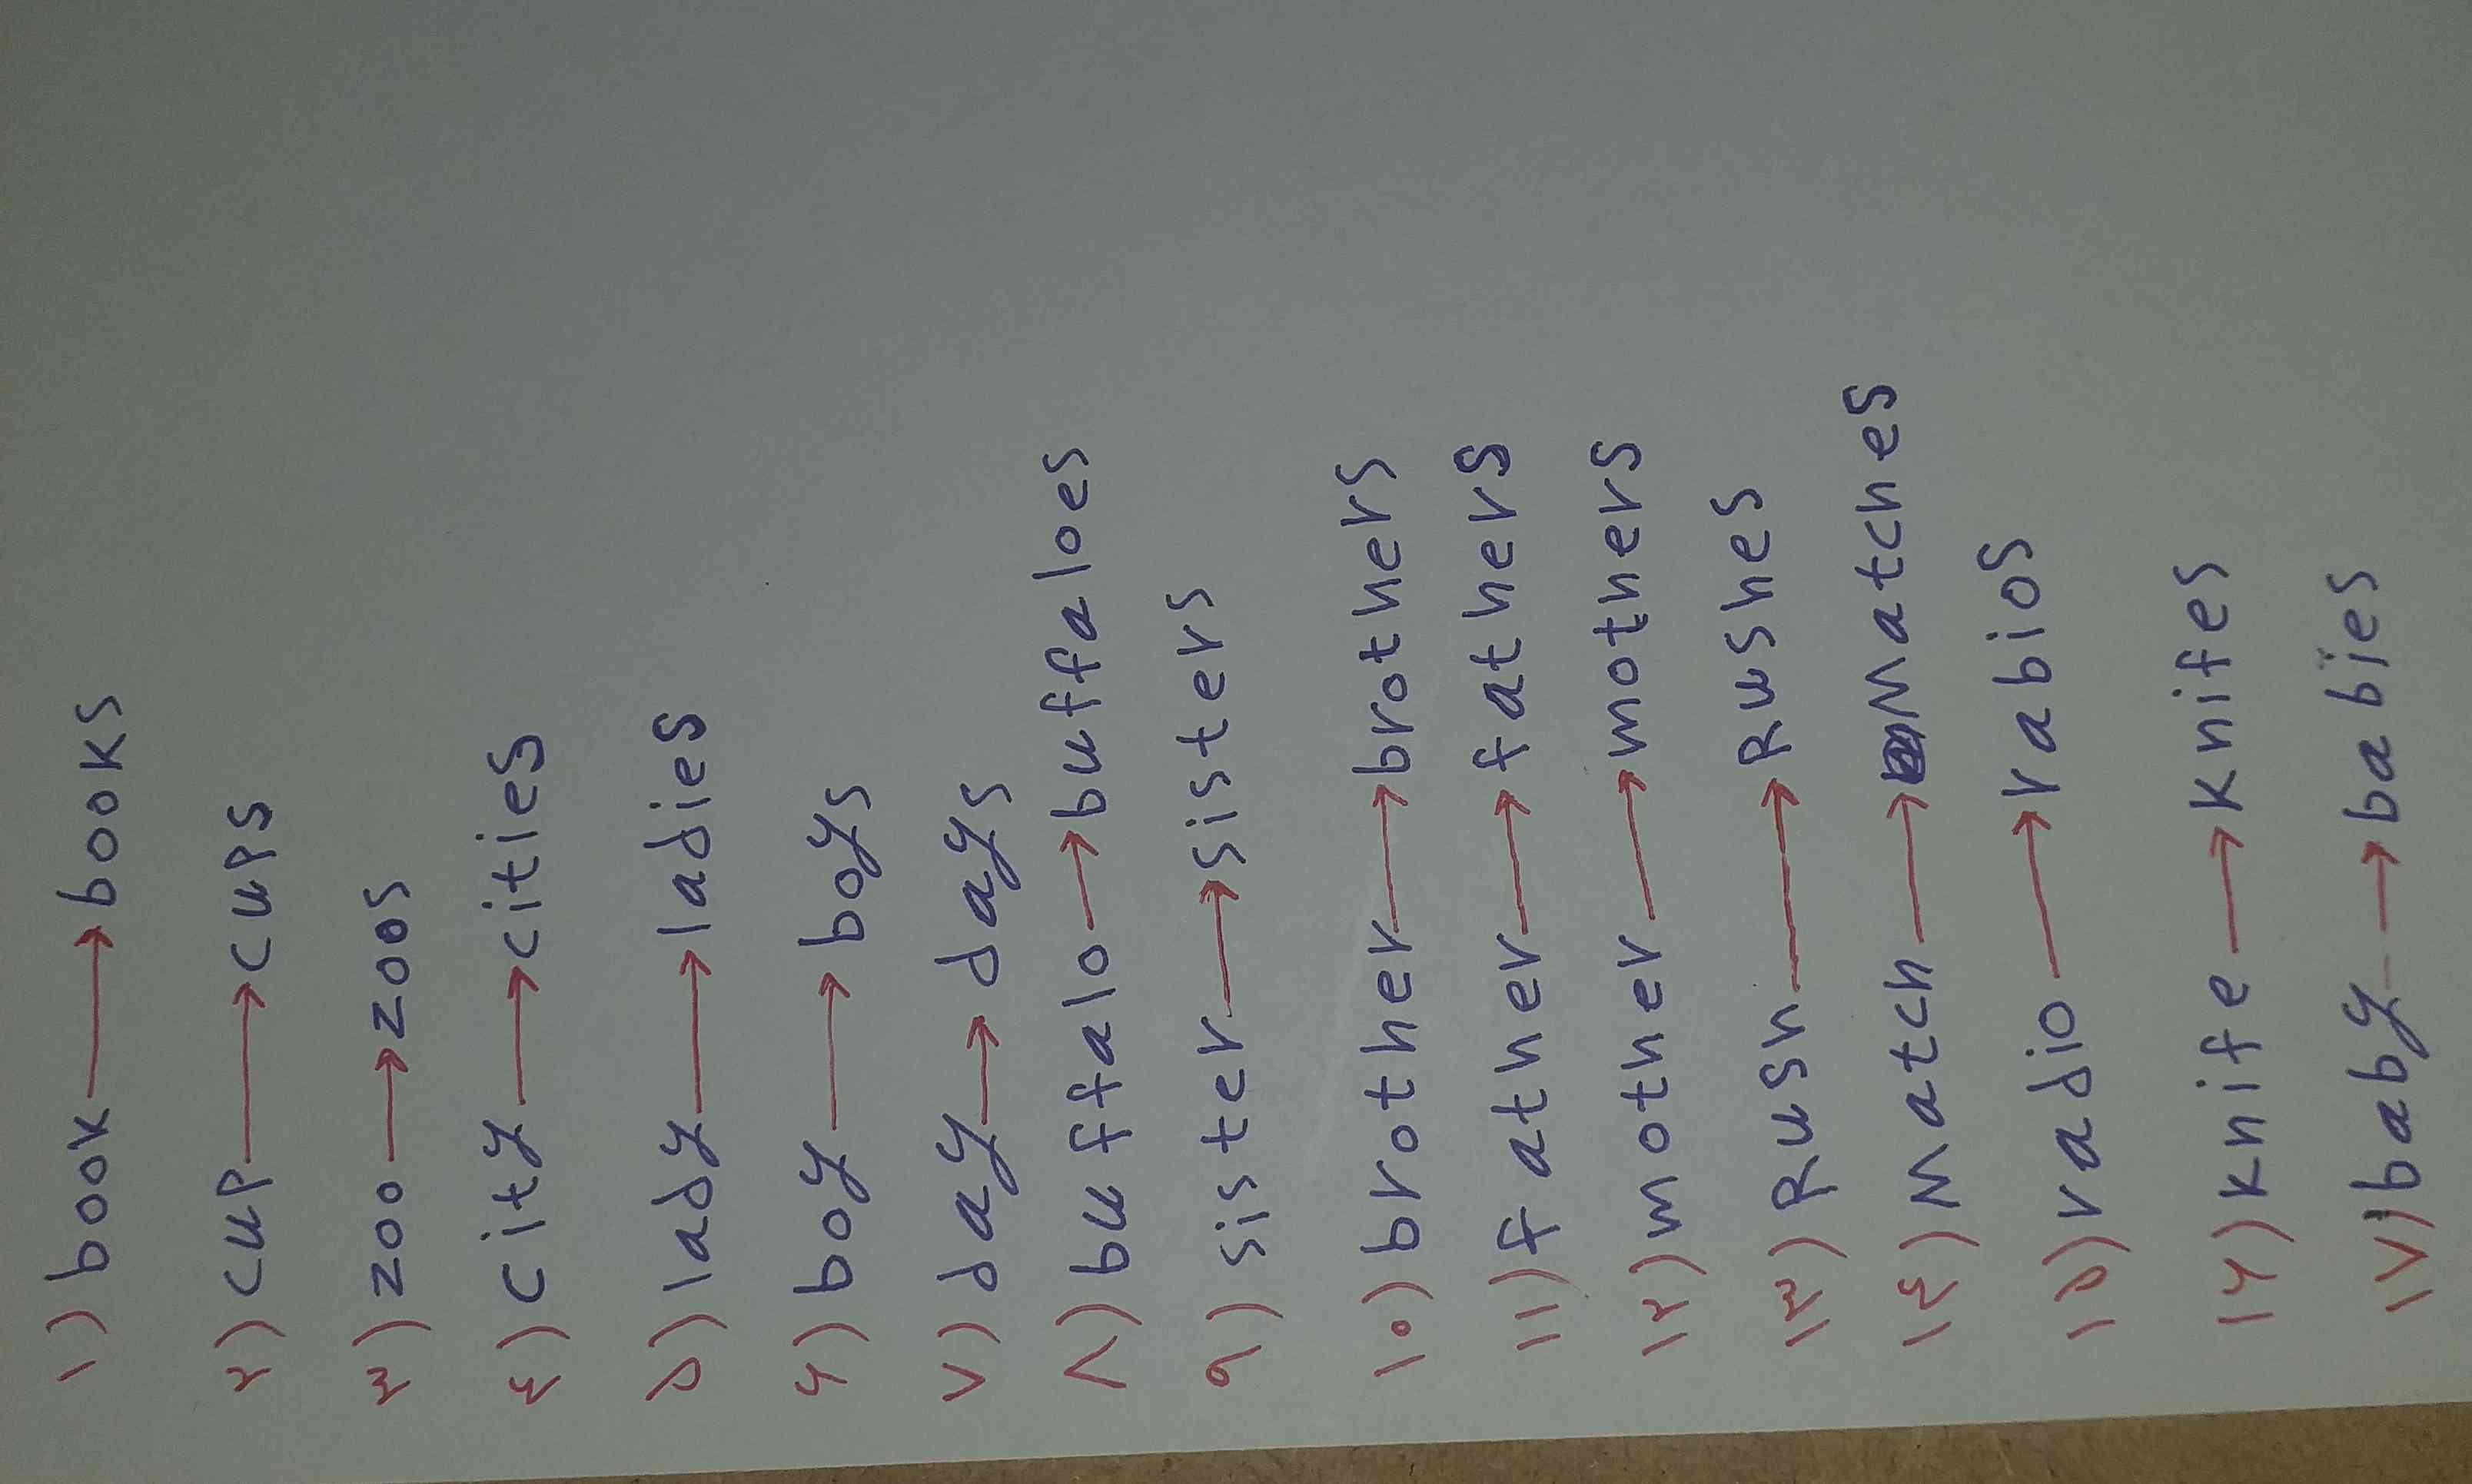 ۱) book → books
۲) cup → cups
۳) zoo → zoos
۴) city → cities
۵) lady → ladies
۶) boy → boys
۷) day → days
۸) buffalo → buffaloes
۹) sister → sisters
۱۰) brother → brothers
۱۱) father → fathers
۱۲) mother → mothers
۱۳) Rush → Rushes
۱۴) Match → Matches
۱۵) radio → rabios
۱۶) knife → knifes
۱۷) baby → babies